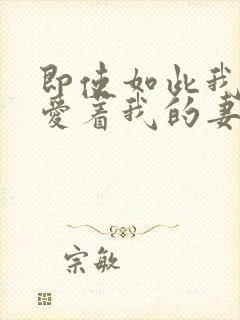 即使如此我
爱着我的妻
宗敏